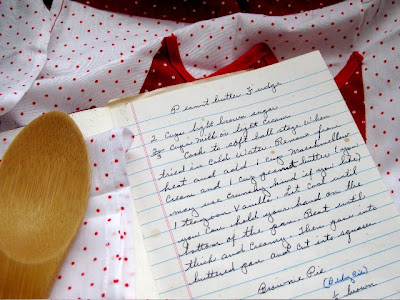 Peanut butter Fudge
2 cups light brown sugar
2/3 cups milk or light cream
Cook to soft ball stage when
tried in cold water. Remove from
heat and add 1 cup Marshmallow
cream and 1 cup peanut butter (you
may use crunchy kind if you like)
1 teaspoon Vanilla. Let cool until
you can hold your hand on the
bottom of the pan. Beat until
thick and creamy. Then pour into
buttered pan and cut into squares
Brownie Pie
brown